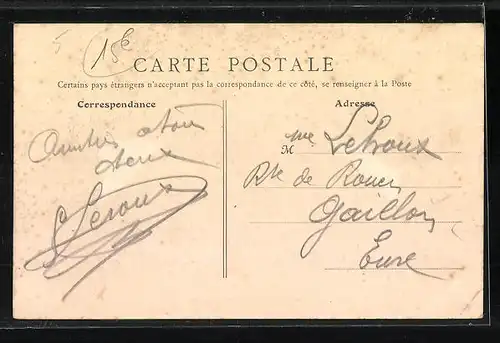 5
15€
CARTE POSTALE
Certains pays étrangers n'acceptant pas la correspondance de ce côté, se renseigner à la Poste
Correspondance
Adresse
deux
Leroux
Mme Lehoux
Rte de Rouen
Gaillon
Eure